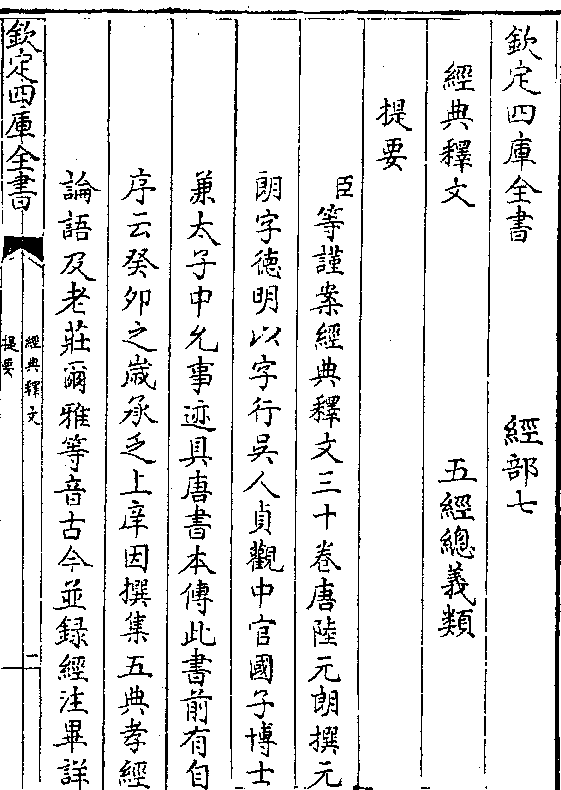 欽定四庫全書 經部七
經典釋文 五經總義類
提要
臣等謹案經典釋文三十卷唐陸元朗撰元
朗字德明以字行吳人貞觀中官國子博士
兼太子中允事迹具唐書本傳此書前有自
序云癸卯之歲承乏上庠因撰集五典孝經
論語及老莊爾雅等音古今並録經注畢詳
欽定四庫全書
經典釋文
提要
一